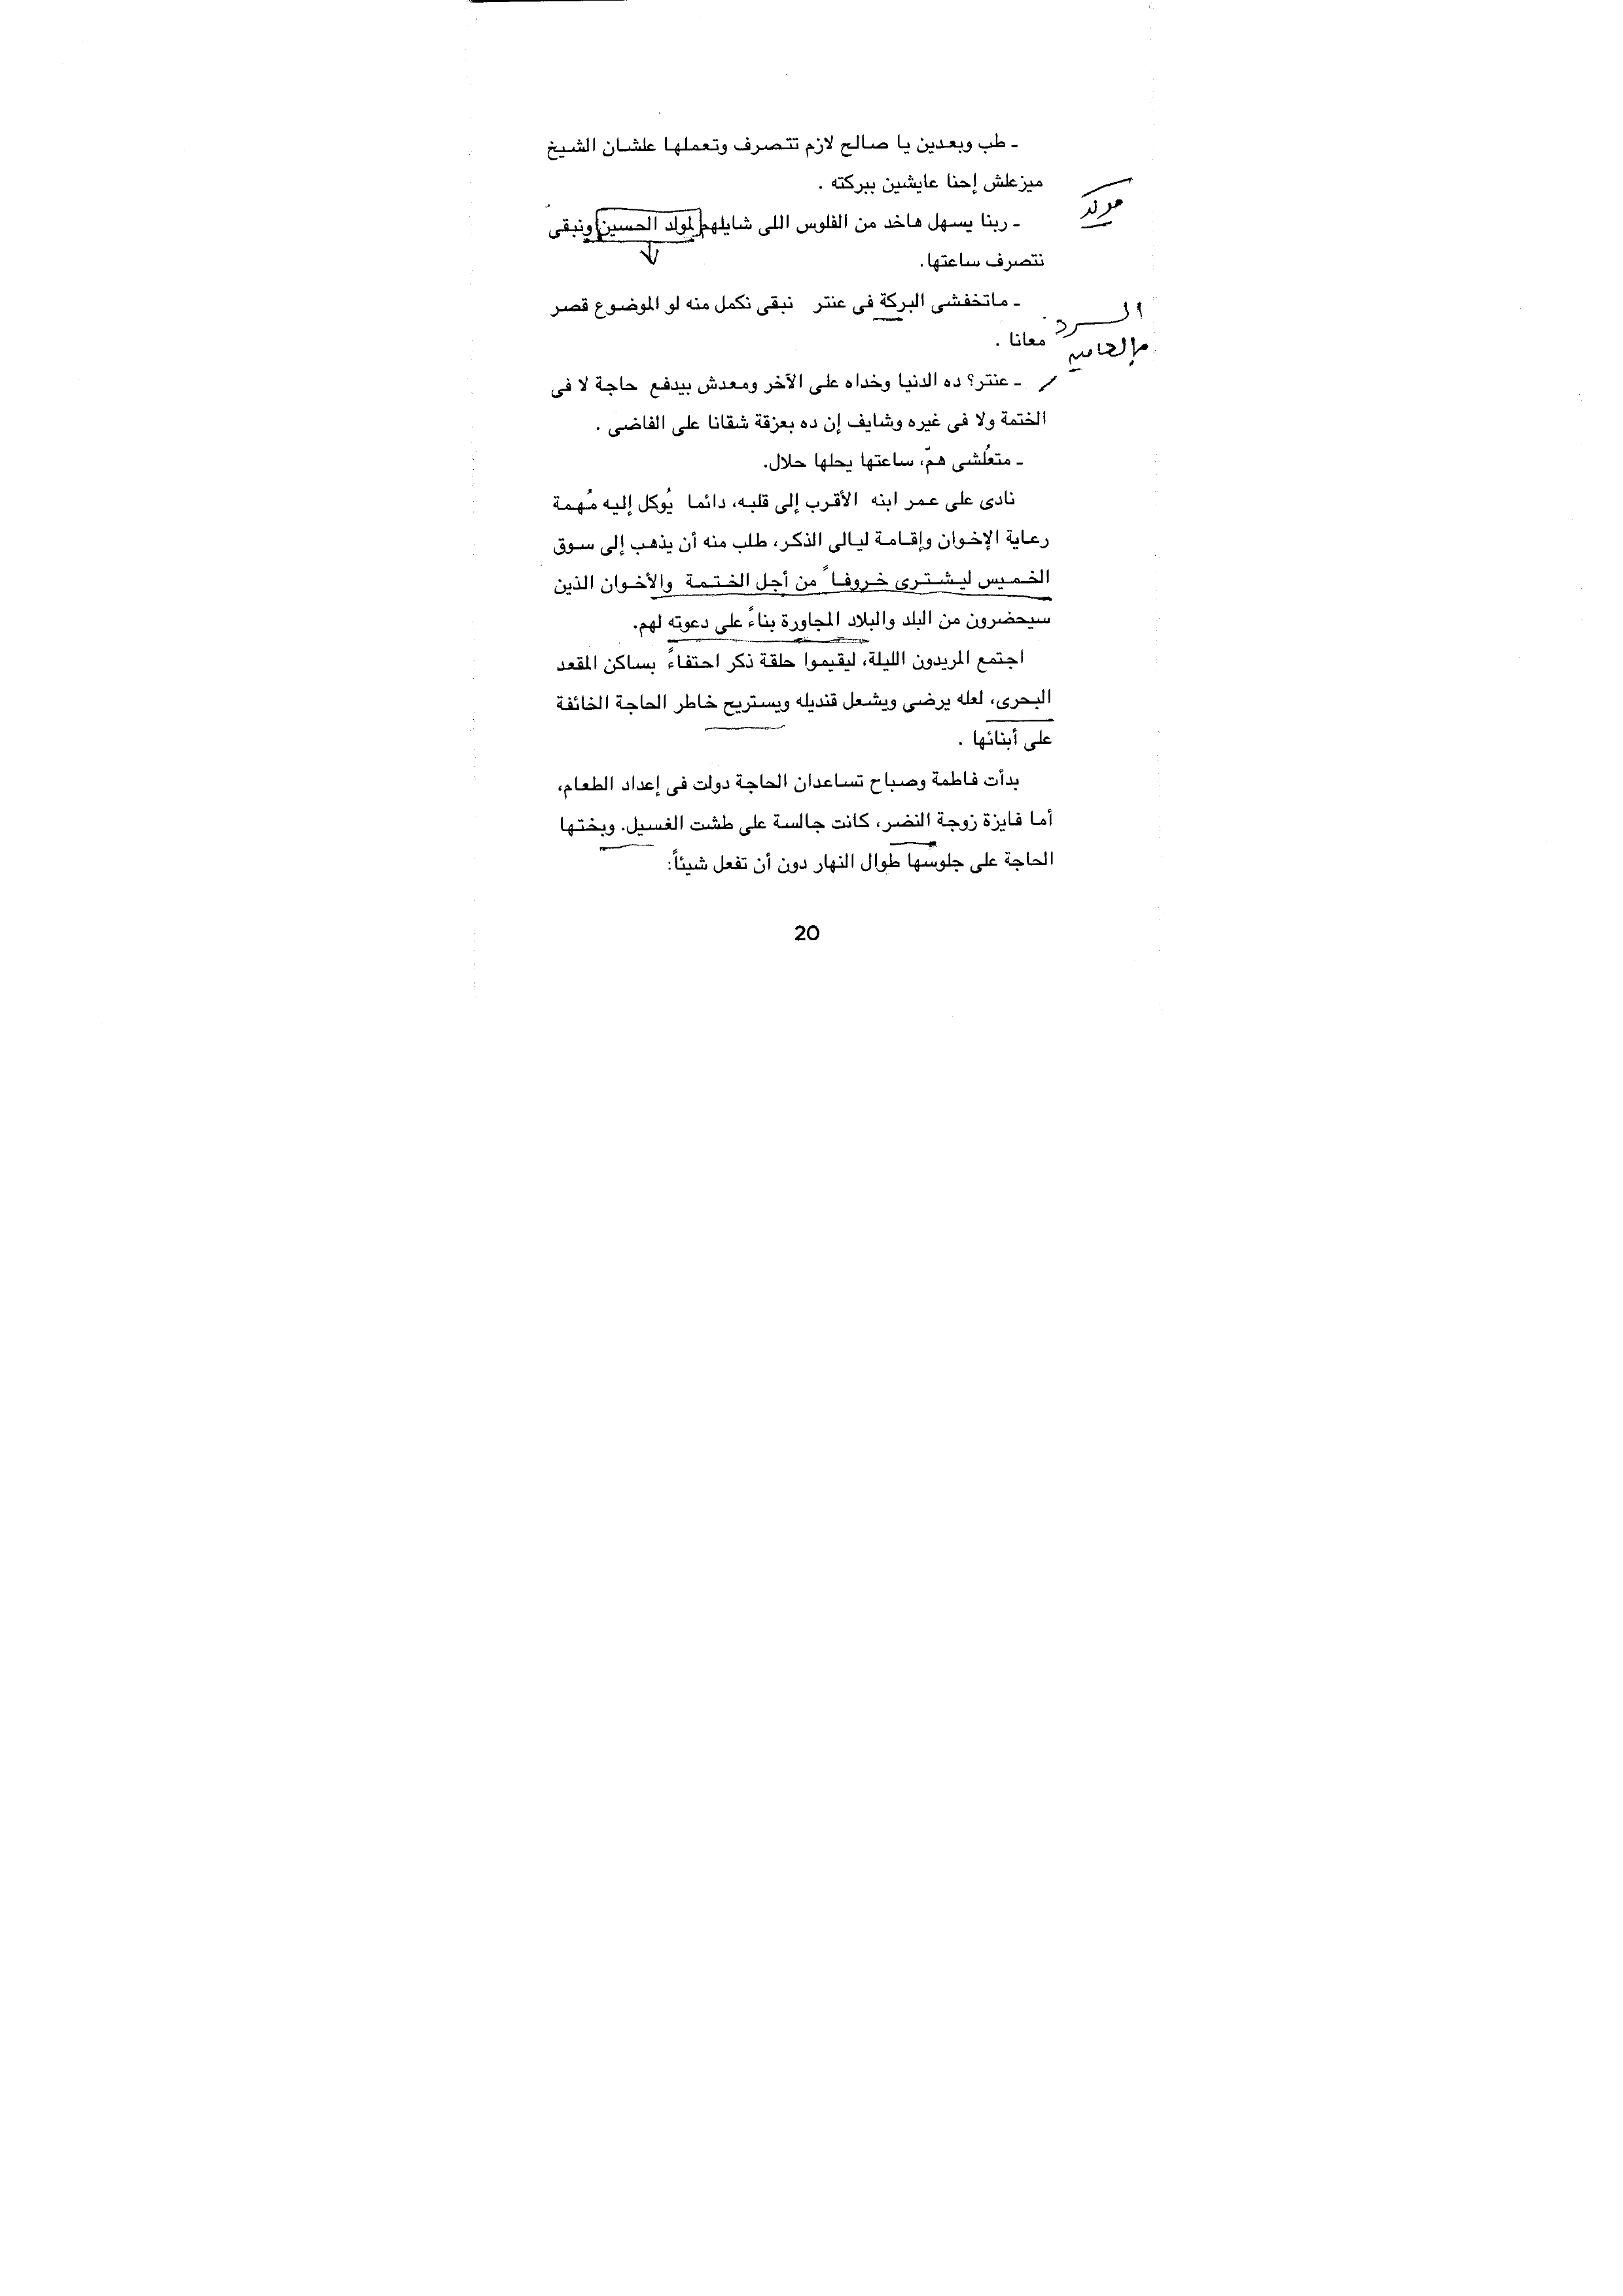 ـ طب وبعدين يا صالح لازم تتصرف وتعملها علشان الشيخ
ميزعلش إحنا عايشين ببركته .
مولد
ـ ربنا يسهل هاخد من الفلوس اللى شايلهم لمولد الحسين ونبقى
نتصرف ساعتها.
ـ ماتخفشى البركة فى عنتر نبقى نكمل منه لو الموضوع قصر
السرد
معانا .
ـ عنتر؟ ده الدنيا وخداه على الآخر ومعدش بيدفع حاجة لا فى
الختمة ولا فى غيره وشايف إن ده بعزقة شقانا على الفاضى .
ـ متعُلشى همّ، ساعتها يحلها حلال.
نادى على عمر ابنه الأقرب إلى قلبه، دائما يُوكل إليه مُهمة
رعاية الإخوان وإقامة ليالى الذكر، طلب منه أن يذهب إلى سوق
الخميس ليشترى خروفاً من أجل الختمة والأخوان الذين
سيحضرون من البلد والبلاد المجاورة بناءً على دعوته لهم.
اجتمع المريدون الليلة، ليقيموا حلقة ذكر احتفاءً بساكن المقعد
البحرى، لعله يرضى ويشعل قنديله ويستريح خاطر الحاجة الخائفة
على أبنائها .
بدأت فاطمة وصباح تساعدان الحاجة دولت فى إعداد الطعام،
أما فايزة زوجة النضر، كانت جالسة على طشت الغسيل. وبختها
الحاجة على جلوسها طوال النهار دون أن تفعل شيئاً:
20